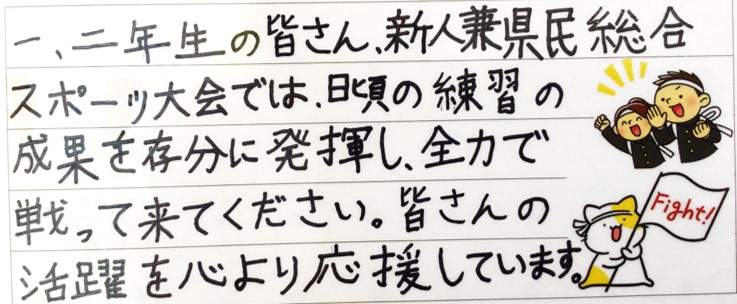 一、二年生の皆さん、新人兼県民総合
スポーツ大会では、日頃の練習の
成果を存分に発揮し、全力で
戦って来てください。皆さんの
活躍を心より応援しています。
Fight!